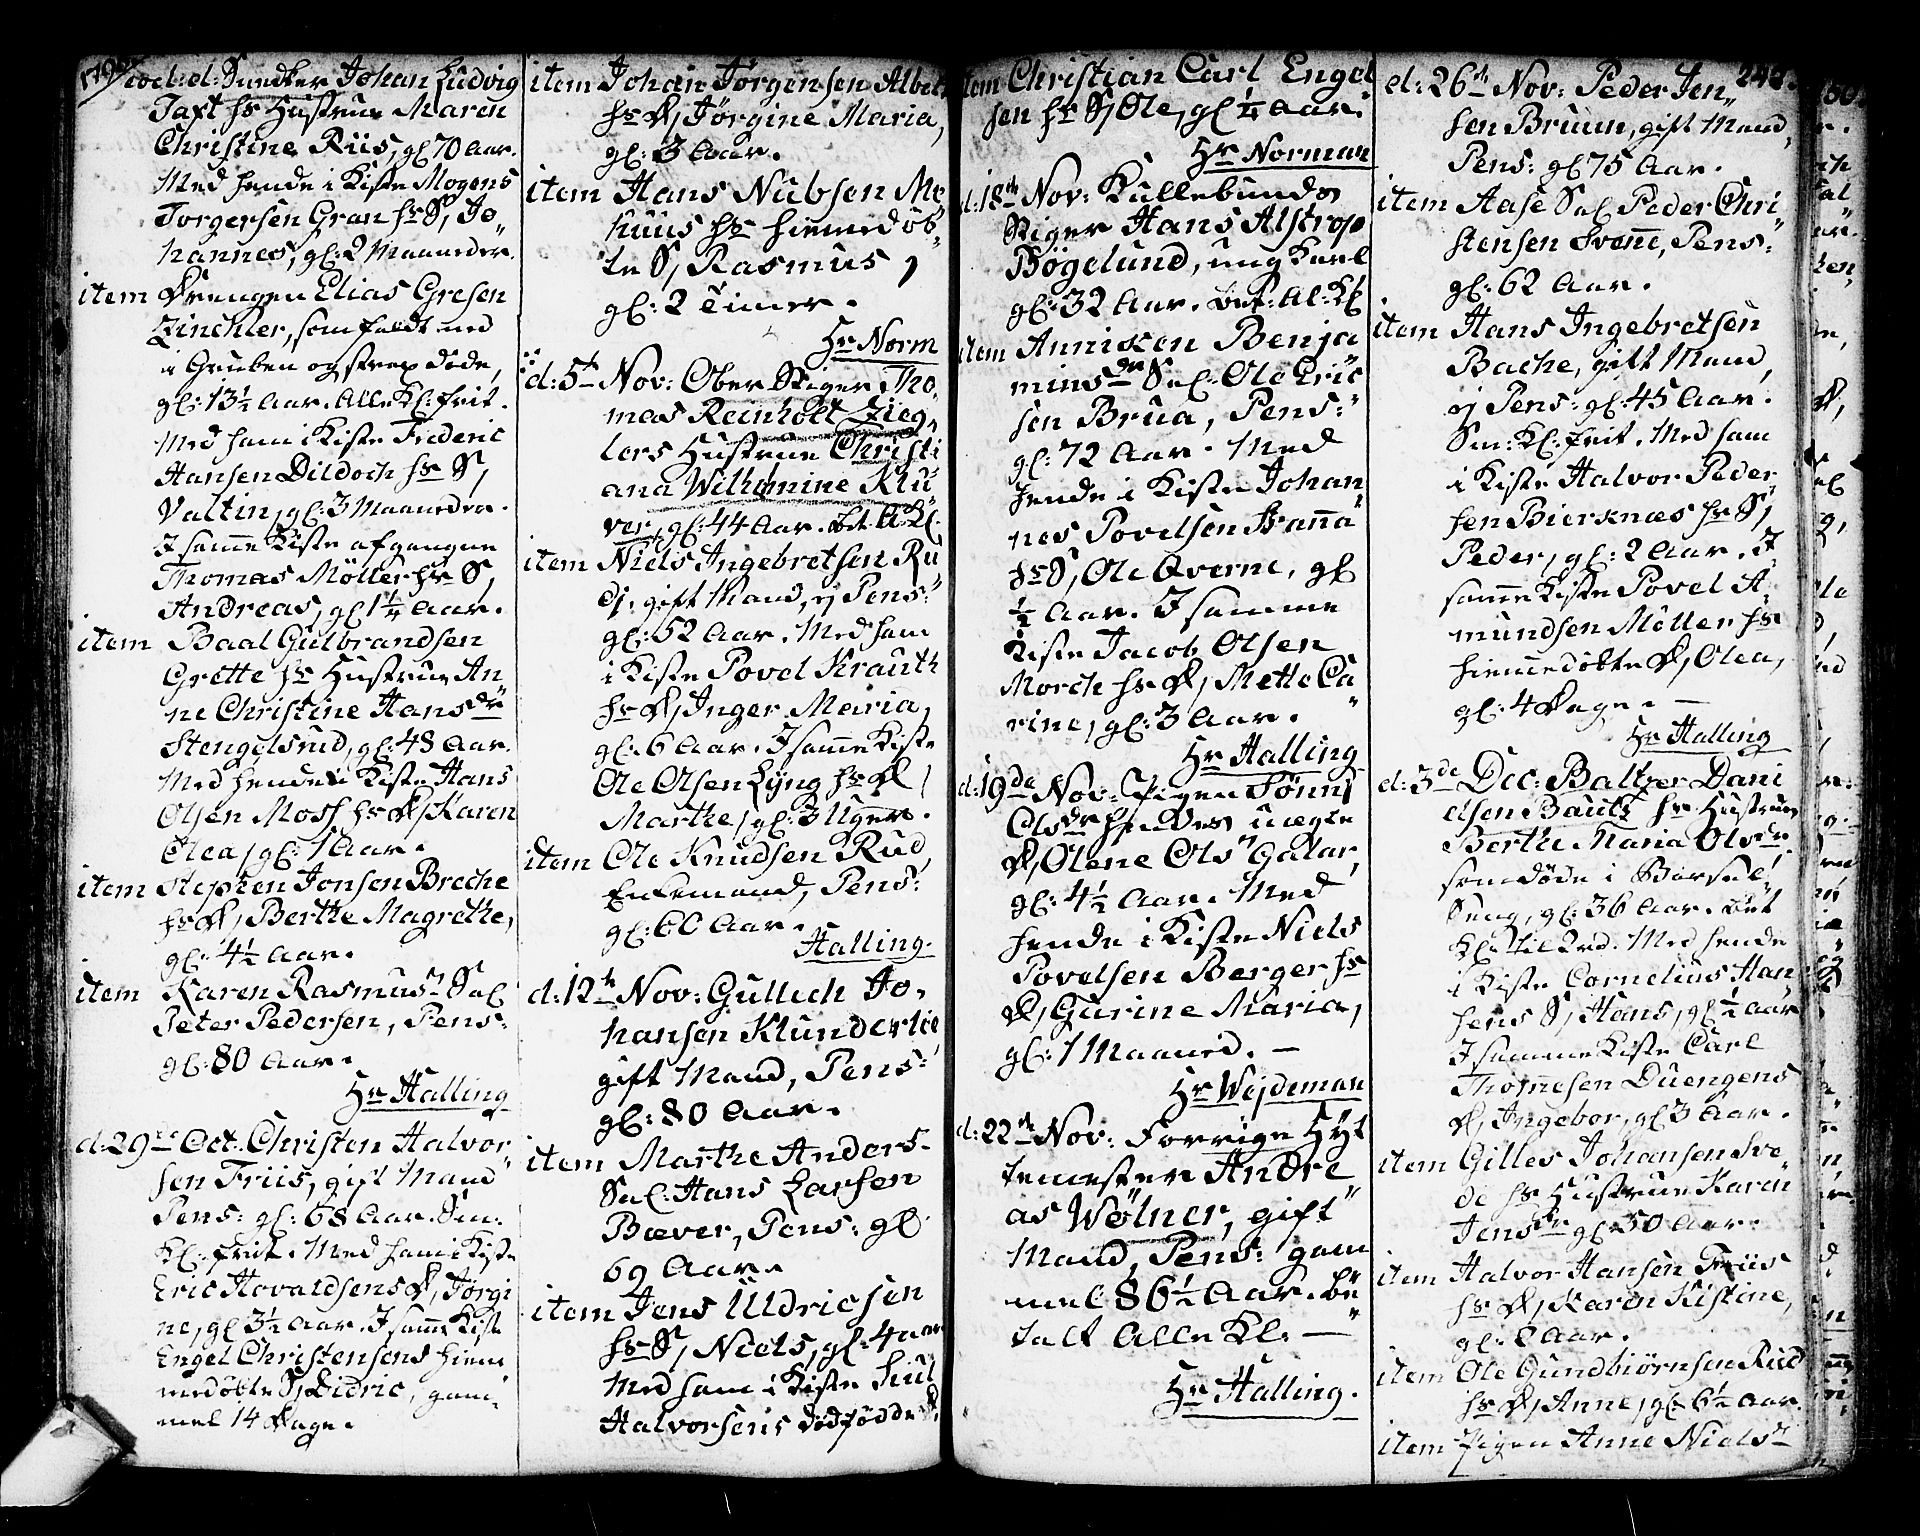 eod: d: Snedker Johan Ludvig
Taft hs Hustrue Maren
Christine Riis, gl: 70 Aar.
Med hende i Kiste Mogens
Torgersen Gran hs S, Jo„
hannes, gl: 2 Maaneder.
item Drengen Elias Gresen
Zinchler, som faldt ned
i Gruben og strax døde,
gl: 13½ Aar. Alle Kl: frit.
Med ham i Kiste Frederic
Hansen Dildoch hs S,
Valtin, gl: 3 Maaneder.
I samme Kiste afgangne
Thomas Möller hs S,
Andreas, gl 1¼ Aar.
item Baal Gulbrandsen
Grette hs Hustrue An„
ne Christine Hansdr
Stengelsrud, gl: 48 Aar.
Med hende i Kiste Hans
Olsen Moss hs D, Karen
Olea, gl: 1 Aar.
item Stephen Jonsen Breche
hs D, Berthe Magrethe,
gl: 4½ Aar.
item Karen Rasmusd Sal
Peter Pedersen, Pens:
gl: 80 Aar.
Hr Halling
d: 29de Oct. Christen Halvor„
sen Friis, gift Mand
Pens: gl: 68 Aar. Sm:
Kl: frit. Med ham i Kiste
Eric Hovaldsens D, Jørgi
ne, gl 3½ Aar. I samme Kiste
Engel Christensens hiem„
medøbte S, Didric, gam„
mel 14 Dage.
item Johan Jørgensen Albeth
hs D, Jörgine Maria,
gl: 3 Aar.
item Hans Nubsen Me„
huus hs hiemedøb„
te S, Rasmus,
gl: 2 Timer.
Hr Norm
d: 5t Nov: Ober Stiger Tho„
mas Reinholt Zieg„
lers Hustrue Christi
ana Wilhemine Klü„
ver, gl: 44 Aar. bet. A: Kl.
item Niels Ingebretsen Ru
di, gift Mand, ej Pens:
gl: 52 Aar. Med ham
i Kiste Povel Krauth
hs D, Inger Maria,
gl: 6 Aar. I samme Kiste
Ole Olsen Lyng hs D,
Marthe, gl: 3 Uger.
item Ole Knudsen Rud,
Enkemand, Pens:
gl: 60 Aar.
Halling.
d: 12th Nov: Gullich Jo„
hansen Klunderlie
gift Mand, Pens:
gl: 80 Aar.
item Marthe Anders„
Sal: Hans Larsen
Bæver, Pens: gl:
69 Aar.
item Jens Uldricsen
hs S, Niels, gl: 4 aar
Med ham i Kiste Juul
Halvorsens dødfødde D.
item Christian Carl Engel
sen hs S, Ole, gl ¼ Aar.
Hr Norman
d: 18th Nov: Kullebunds
Stiger Hans Alstrop
Bøgelund, ung Karl
gl: 32 Aar. bet: Al: Kl
item Annisken Benja„
minsdr Sal: Ole Eric„
sen Brua, Pens:
gl: 72 Aar. Med
hende i Kiste Johan„
nes Povelsen Hanna
hs S, Ole Qverne, gl
½ Aar. I samme
Kiste Jacob Olsen
Morch hs D, Mette Ca„
rine, gl: 3 Aar.
Hr Halling
d: 19de Nov: Pigen Tønni
Olsdr hendes uægte
D, Olene Olsd Galar,
gl: 4½ Aar. Med
hende i Kiste Niels
Povelsen Berger hs
D, Gurine Maria,
gl: 1 Maaned. —
Hr Wejdeman
d: 22th Nov: Forrige Hyt
temester Andre
as Wölner, gift
Mand, Pens: gam
mel 86½ Aar. be„
talt Alle Kl: —
Hr Halling.
248.
d: 26th Nov: Peder Jen„
sen Bruun, gift Mand,
Pens: gl 75 Aar.
item Aase Sal Peder Chri„
stensen Svene, Pens:
gl: 62 Aar.
item Hans Ingebretsen
Bache, gift Mand,
ej Pens: gl: 45 Aar.
Sm: Kl: frit. Med ham
i Kiste Halvor Peder„
sen Bierknæs hs S,
Peder, gl: 2 Aar. I
samme Kiste Povel A„
mundsen Möller hs
hiemmedøbte D, Olea,
gl: 4 Dage. —
Hr Halling
d: 3de Dec: Baltzer Dani„
elsen Bautz hs Hustrue
Berthe Maria Olsdr,
som døde i Barsel„
Seng, gl: 36 Aar. bet
Kl: til Ord. Med hende
i Kiste Cornelius Han„
sens S, Hans, gl ½ aar
I samme Kiste Carl
Thomesen Duengens
D, Ingebor, gl: 3 Aar.
item Gilles Johansen Sve„
de hs Hustrue Karen
Jensdr gl: 50 Aar.
item Halvor Hansen Friis
hs D, Karen Kistine,
gl: Aar.
item Ole Gundbiørnsen Rud
hs D, Anne, gl: 6½ Aar.
item Pigen Anne Nielsd